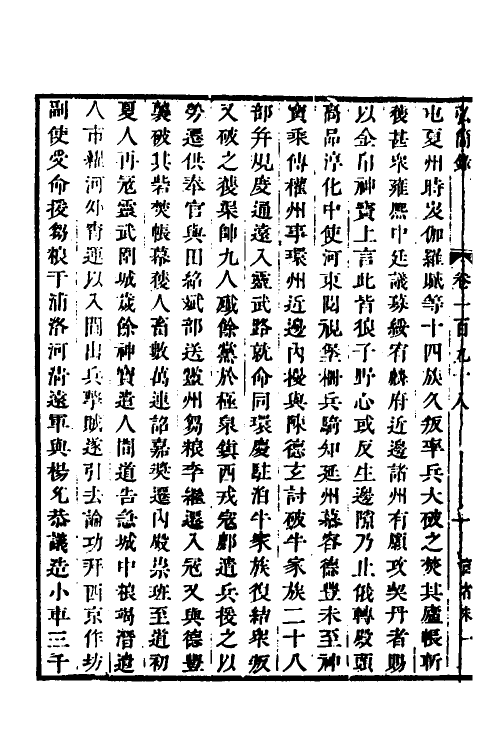 弘簡錄 卷一百九十八 十
屯夏州時岌伽羅膩等十四族久叛率兵大破之焚其廬帳斬
獲甚衆雍熙中廷議募緩宥麟府近邊諸州有願攻契丹者賜
以金帛神寶上言此皆狼子野心或反生邊隙乃止俄轉殿頭
高品淳化中使河東閱視堡柵兵騎知延州慕容德豐未至神
寶乘傳權州事環州近邊內擾與陳德玄討破牛家族二十八
部幷規度通遠入靈武路就命同環慶駐泊牛家族復結衆叛
又破之獲渠帥九人殲餘黨於極泉鎮西戎寇鄜遣兵援之以
勞遷供奉官與田紹斌部送靈州芻粮李繼遷入寇又與德豐
襲破其砦焚帳幕獲人畜數萬連詔嘉奬遷內殿崇班至道初
夏人再寇靈武圍城歲餘神寶遣人間道告急城中粮竭潛遣
人市糴河外宵運以入間出兵擊賊遂引去論功拜西京作坊
副使受命援芻粮于浦洛河淸遠軍與楊允恭議造小車三千